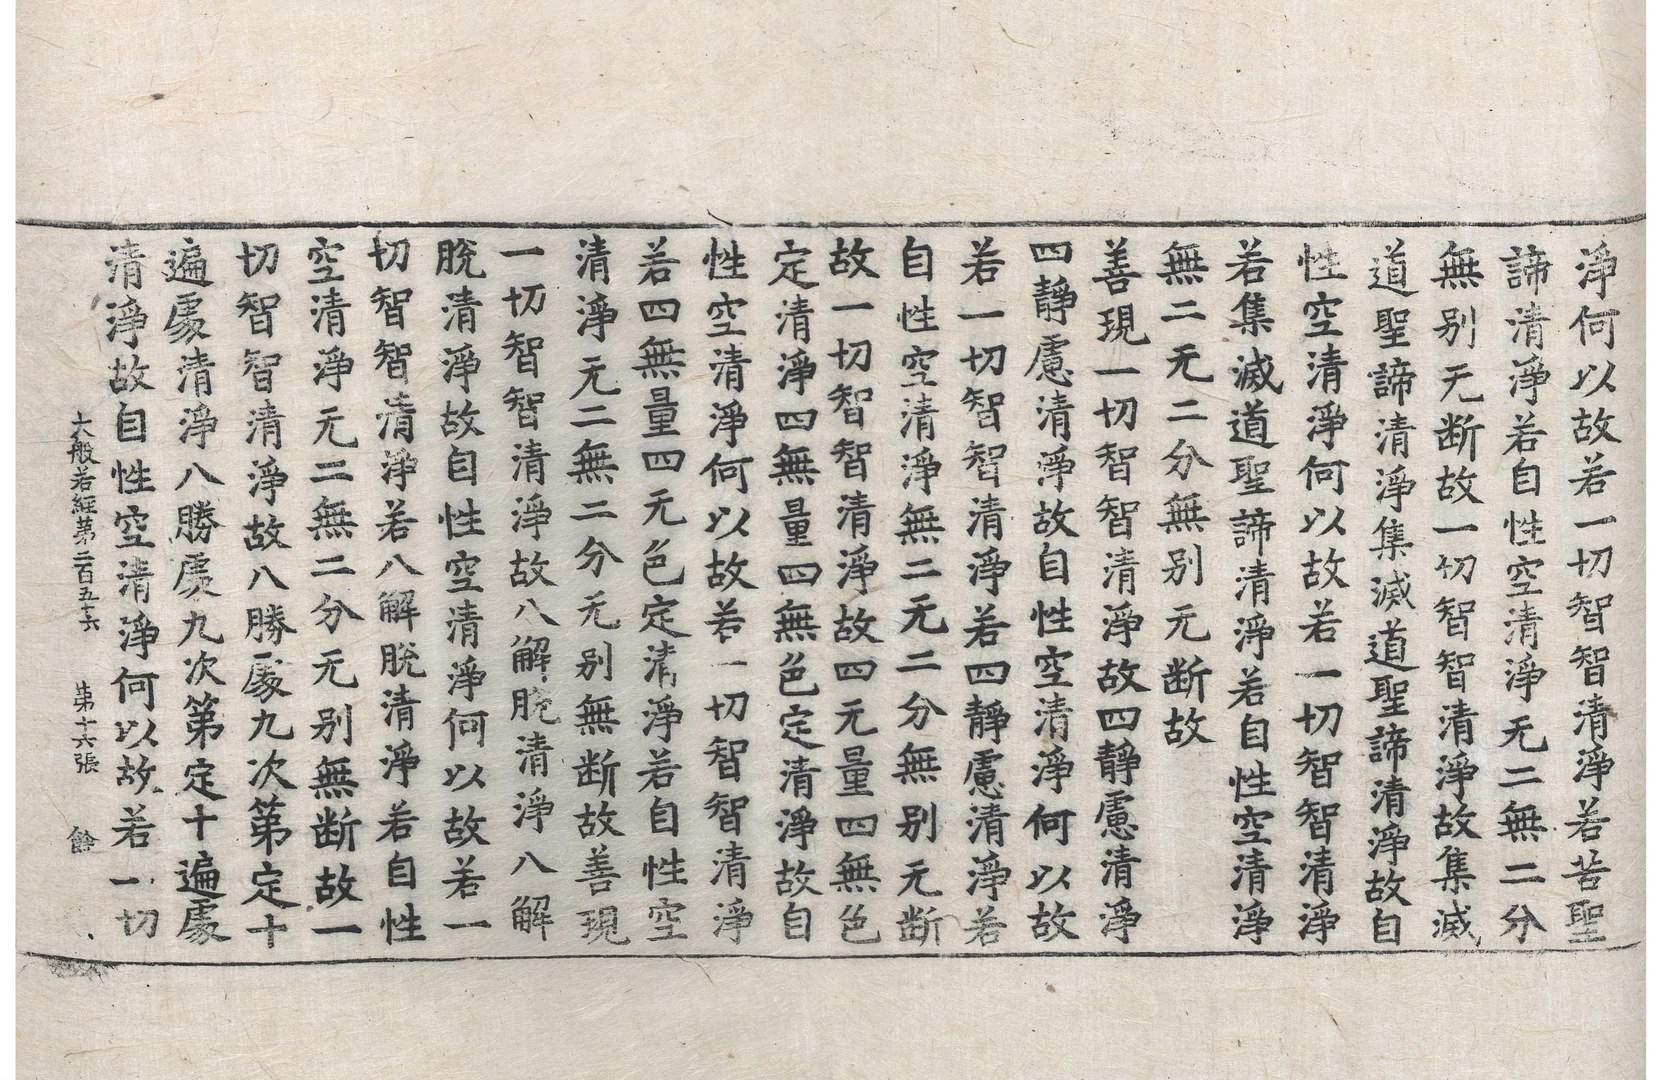 淨何以故若一切智智清淨若苦聖
諦清淨若自性空清淨无二無二分
無別无断故一切智智清淨故集滅
道聖諦清淨集滅道聖諦清淨故自
性空清淨何以故若一切智智清淨
若集滅道聖諦清淨若自性空清淨
無二无二分無別无断故
善現一切智智清淨故四靜慮清淨
四靜慮清淨故自性空清淨何以故
若一切智智清淨若四靜慮清淨若
自性空清淨無二无二分無別无断
故一切智智清淨故四无量四無色
定清淨四無量四無色定清淨故自
性空清淨何以故若一切智智清淨
若四無量四无色定清淨若自性空
清淨无二無二分无別無断故善現
一切智智清淨故八解脫清淨八解
脫清淨故自性空清淨何以故若一
切智智清淨若八解脫清淨若自性
空清淨无二無二分无別無断故一
切智智清淨故八勝處九次第定十
遍處清淨八勝處九次第定十遍處
清淨故自性空清淨何以故若一切
大般若經第二百五十六 第十六張 餘